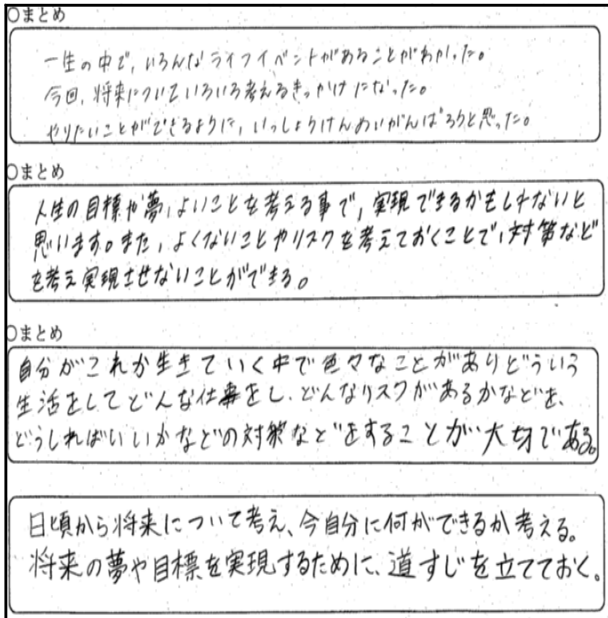 ○まとめ
一生の中で、いろんなライフイベントがあることがわかった。
今回、将来についていろいろ考えるきっかけになった。
やりたいことができるように、いっしょうけんめいがんばろうと思った。
○まとめ
人生の目標や夢、よいことを考える事で、実現できるかもしれないと
思います。また、よくないことやリスクを考えておくことで、対策など
を考え実現させないことができる。
○まとめ
自分がこれか生きていく中で色々なことがありどういう
生活をしてどんな仕事をし、どんなリスクがあるかなどを、
どうしればいいかなどの対策などをすることが大切である。
日頃から将来について考え、今自分に何ができるか考える。
将来の夢や目標を実現するために、道すじを立てておく。